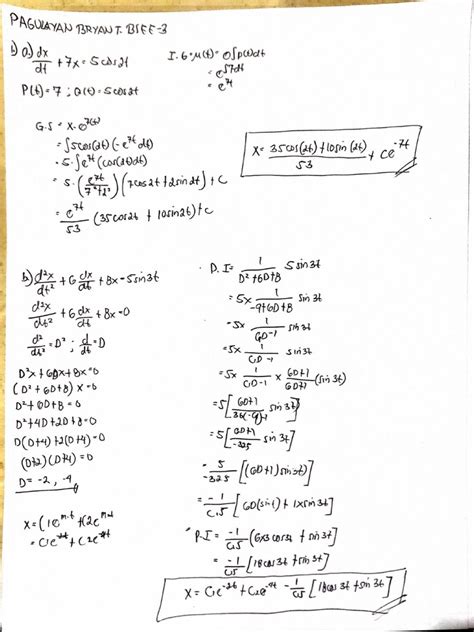 PAGULAYAN BRYAN T. BSEE-3
1) a) dx/dt + 7x = 5cos2t
P(t) = 7 ; Q(t) = 5cos2t
I.G = μ(t) = e^∫p(t)dt
= e^∫7dt
= e^7t
G.S = x · e^7(t)
= ∫5cos(2t)(-e^7t dt)
= 5·∫e^7t (cos(2t)dt)
= 5·(e^7t/7²+2²)(7cos2t+2sin2t)+C
= e^7t/53 (35cos2t + 10sin2t)+C
x = 35cos(2t)+10sin(2t)/53 + Ce^-7t
b) d²x/dt² + 6dx/dt + 8x = 5sin3t
d²x/dt² + 6dx/dt + 8x = 0
d²/dt² = D² ; d/dt = D
D²x + 6Dx + 8x = 0
(D² + 6D + 8) x = 0
D² + 6D + 8 = 0
D² + 4D + 2D + 8 = 0
D(D+4) + 2(D+4) = 0
(D+2)(D+4) = 0
D = -2, -4
P.I = 1/D²+6D+8 5sin3t
= 5x 1/-9+6D+8 sin3t
= 5x 1/6D-1 sin3t
= 5x 1/6D-1 sin3t
= 5x 1/6D-1 x 6D+1/6D+1 (sin3t)
= 5[6D+1/36(-9)-1 sin3t]
= 5[6D+1/-325 sin3t]
= 5/-325 [(6D+1)sin3t]
P.I = -1/65 (6x3cos3t + sin3t]
= -1/65 [18cos3t + sin3t]
x = C1e^-2t + C2e^-4t - 1/65 [18cos3t + sin3t]